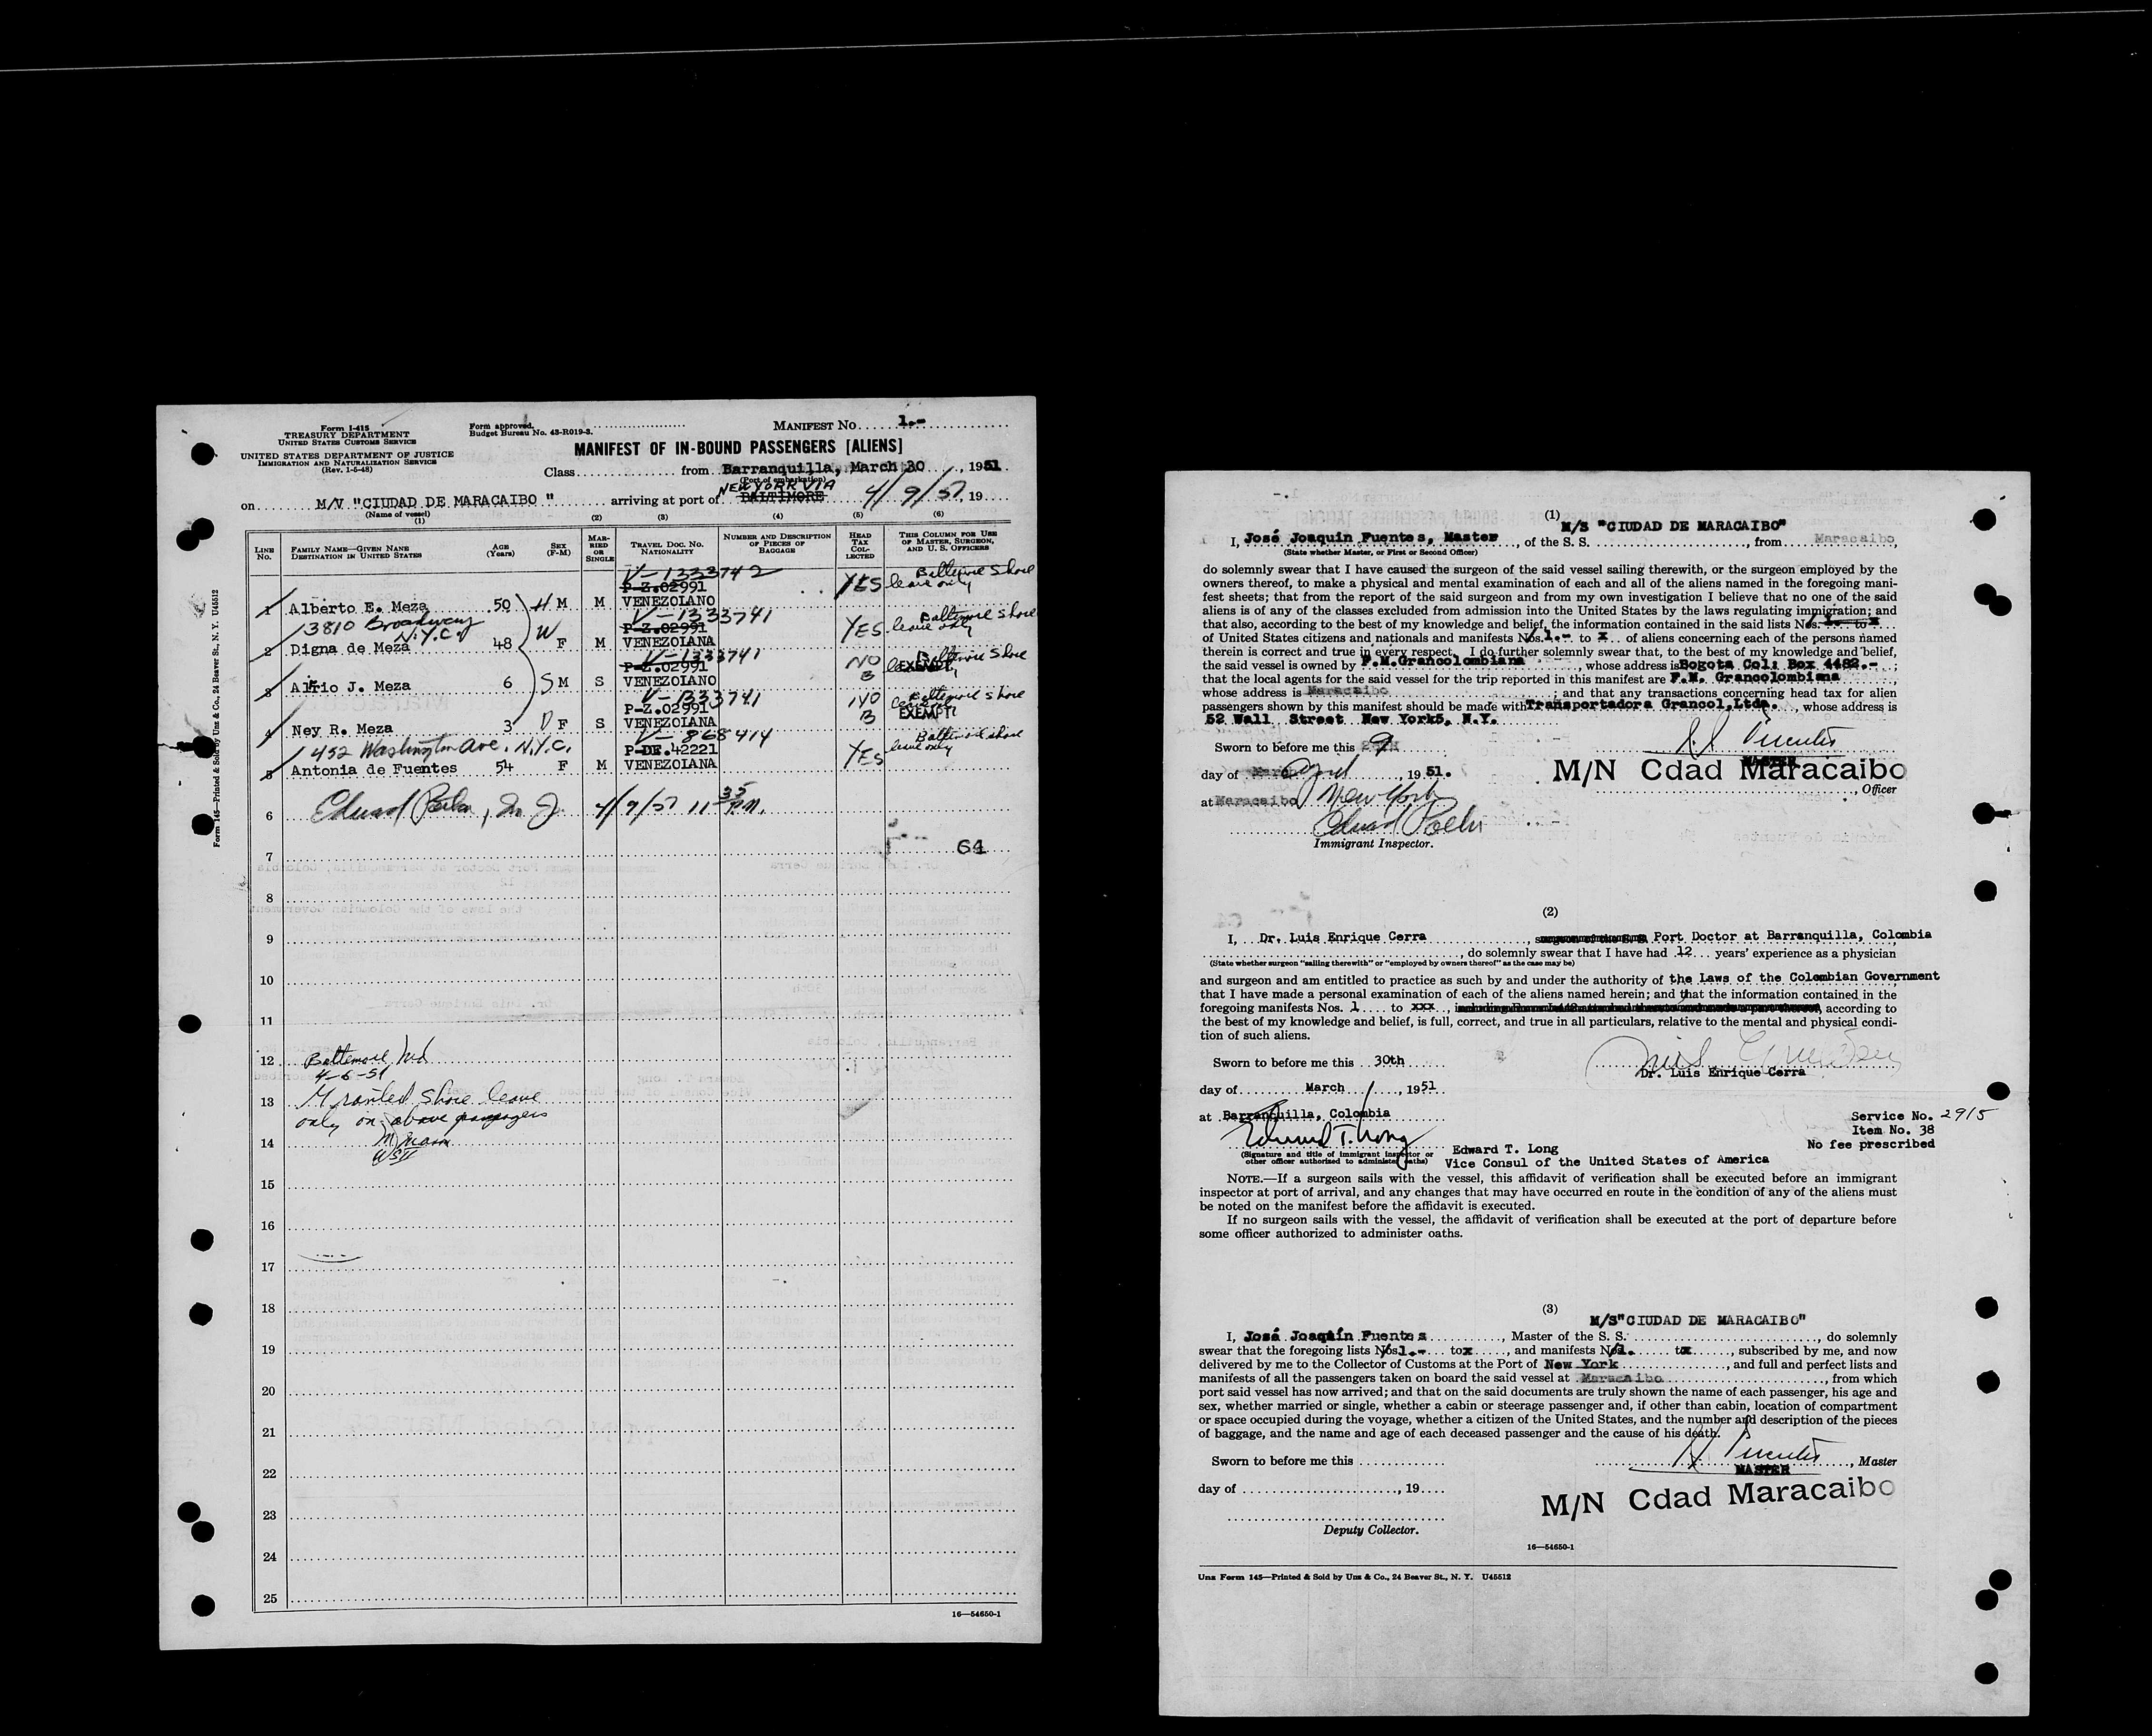 Form I-415
TREASURY DEPARTMENT
UNITED STATES CUSTOMS SERVICE
UNITED STATES DEPARTMENT OF JUSTICE
IMMIGRATION AND NATURALIZATION SERVICE
(Rev. 1-5-48)
Form approved.
Budget Bureau No. 43-R019-3.
MANIFEST NO 1.-
MANIFEST OF IN-BOUND PASSENGERS [ALIENS]
Class from Barranquilla, March 30, 1951
(Port of embarkation)
NEW YORK VIA
on M/V "CIUDAD DE MARACAIBO " arriving at port of BALTIMORE 4/9/51, 19
(Name of vessel)
(1) (2) (3) (4) (5) (6)
LINE NO. FAMILY NAME—GIVEN NAME DESTINATION IN UNITED STATES AGE (Years) SEX (F-M) MARRIED OR SINGLE TRAVEL DOC. NO. NATIONALITY NUMBER AND DESCRIPTION OF PIECES OF BAGGAGE HEAD TAX COLLECTED THIS COLUMN FOR USE OF MASTER, SURGEON, AND U. S. OFFICERS
V-1333742 Baltimore shore
P-Z.02991 YES leave only
1 Alberto E. Meza 50 H M M VENEZOLANO
3810 Broadway V-1333741 Baltimore shore
N.Y.C. W P-Z.02991 YES leave only
2 Digna de Meza 48 F M VENEZOLANA
V-1333741 Baltimore shore
P-Z.02991 NO EXEMPT
3 Alfrio J. Meza 6 S M S VENEZOLANO B
V-1333741 Baltimore shore
P-Z.02991 NO
4 Ney R. Meza 3 D F S VENEZOLANA B EXEMPT
1452 Washington Ave. N.Y.C. V-868414 Baltimore shore
P-DE.42221 YES leave only
5 Antonia de Fuentes 54 F M VENEZOLANA
6 4/9/51 11 35 P.M.
7 64
8
9
10
11
12 Baltimore Md
4-6-51
13 Granted shore leave
only on above passengers
14
15
16
17
18
19
20
21
22
23
24
25
16—54650-1
Form 145—Printed & Sold by Unz & Co., 24 Beaver St., N. Y. U45512
(1)
M/S "CIUDAD DE MARACAIBO"
I, José Joaquin Fuentes, Master, of the S. S. , from Maracaibo,
(State whether Master, or First or Second Officer)
do solemnly swear that I have caused the surgeon of the said vessel sailing therewith, or the surgeon employed by the
owners thereof, to make a physical and mental examination of each and all of the aliens named in the foregoing mani-
fest sheets; that from the report of the said surgeon and from my own investigation I believe that no one of the said
aliens is of any of the classes excluded from admission into the United States by the laws regulating immigration; and
that also, according to the best of my knowledge and belief, the information contained in the said lists Nos. 1. to x
of United States citizens and nationals and manifests Nos. 1.- to x of aliens concerning each of the persons named
therein is correct and true in every respect. I do further solemnly swear that, to the best of my knowledge and belief,
the said vessel is owned by F.M.Grancolombiana, whose address is Bogota Col: Box 4482.- ;
that the local agents for the said vessel for the trip reported in this manifest are F.M. Grancolombiana,
whose address is Maracaibo ; and that any transactions concerning head tax for alien
passengers shown by this manifest should be made with Transportadora Grancol.Ltda. , whose address is
52 Wall Street New York5, N.Y.
Sworn to before me this 9
MASTER
day of April, 1951.
M/N Cdad Maracaibo
, Officer
at Maracaibo New York
Immigrant Inspector.
(2)
I, Dr. Luis Enrique Cerra , surgeon of the S. S. Port Doctor at Barranquilla, Colombia
, do solemnly swear that I have had 12 years' experience as a physician
(State whether surgeon "sailing therewith" or "employed by owners thereof" as the case may be)
and surgeon and am entitled to practice as such by and under the authority of the Laws of the Colombian Government
that I have made a personal examination of each of the aliens named herein; and that the information contained in the
foregoing manifests Nos. 1 to xxx , according to
the best of my knowledge and belief, is full, correct, and true in all particulars, relative to the mental and physical condi-
tion of such aliens.
Sworn to before me this 30th
Dr. Luis Enrique Cerra
day of March, 1951
at Barranquilla, Colombia
Service No. 2915
Item No. 38
No fee prescribed
Edward T. Long
(Signature and title of immigrant inspector or other officer authorized to administer oaths)
Edward T. Long
Vice Consul of the United States of America
NOTE.—If a surgeon sails with the vessel, this affidavit of verification shall be executed before an immigrant
inspector at port of arrival, and any changes that may have occurred en route in the condition of any of the aliens must
be noted on the manifest before the affidavit is executed.
If no surgeon sails with the vessel, the affidavit of verification shall be executed at the port of departure before
some officer authorized to administer oaths.
(3)
M/S"CIUDAD DE MARACAIBO"
I, José Joaquín Fuentes , Master of the S. S. , do solemnly
swear that the foregoing lists Nos. 1.- to x , and manifests Nos. 1. to x , subscribed by me, and now
delivered by me to the Collector of Customs at the Port of New York , and full and perfect lists and
manifests of all the passengers taken on board the said vessel at Maracaibo , from which
port said vessel has now arrived; and that on the said documents are truly shown the name of each passenger, his age and
sex, whether married or single, whether a cabin or steerage passenger and, if other than cabin, location of compartment
or space occupied during the voyage, whether a citizen of the United States, and the number and description of the pieces
of baggage, and the name and age of each deceased passenger and the cause of his death.
Sworn to before me this
, Master
MASTER
day of , 19
M/N Cdad Maracaibo
Deputy Collector.
16—54650-1
Unz Form 145—Printed & Sold by Unz & Co., 24 Beaver St., N. Y. U45512